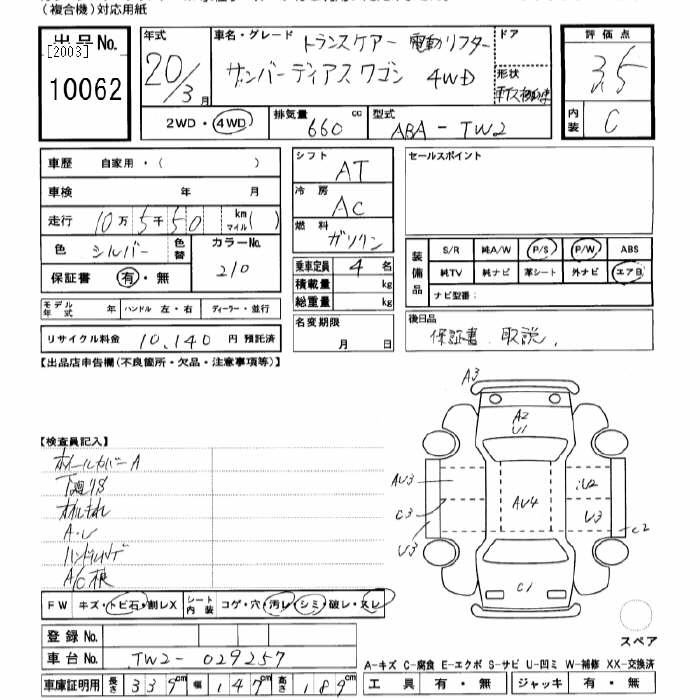 (複合機)対応用紙
出品No.
[2003]
10062
年式
20/3月
車名・グレード
トランスケアー 電動リフター
サンバーディアスワゴン 4WD
ドア
形状
評価点
3.5
内装
C
2WD・4WD
排気量
660 cc
型式
ABA-TW2
車歴 自家用・( )
車検 年 月
走行 10万5千50 km マイル( )
色 シルバー 色替
カラーNo.
210
保証書 有・無
モデル年式 年 ハンドル 左・右 ディーラー・並行
リサイクル料金 10,140 円 預託済
シフト
AT
冷房
AC
燃料
ガソリン
乗車定員 4 名
積載量 kg
総重量 kg
名変期限
月 日
セールスポイント
装備品
S/R 純A/W P/S P/W ABS
純TV 純ナビ 革シート 外ナビ エアB
ナビ型番:
後日品
保証書 取説
【出品店申告欄(不良箇所・欠品・注意事項等)】
【検査員記入】
ホイールカバーA
下廻りS
A・U
A/C
A3
A2
U1
AU3
C3
U3
AU4
iU2
U3
C2
C1
FW キズ・トビ石・割レX シート内装 コゲ・穴・汚レ・シミ・破レ・スレ
登録No.
車台No. TW2-029257
車庫証明用 長さ 339cm 幅 147cm 高さ 189cm
スペア
A-キズ C-腐食 E-エクボ S-サビ U-凹ミ W-補修 XX-交換済
工具 有・無 ジャッキ 有・無